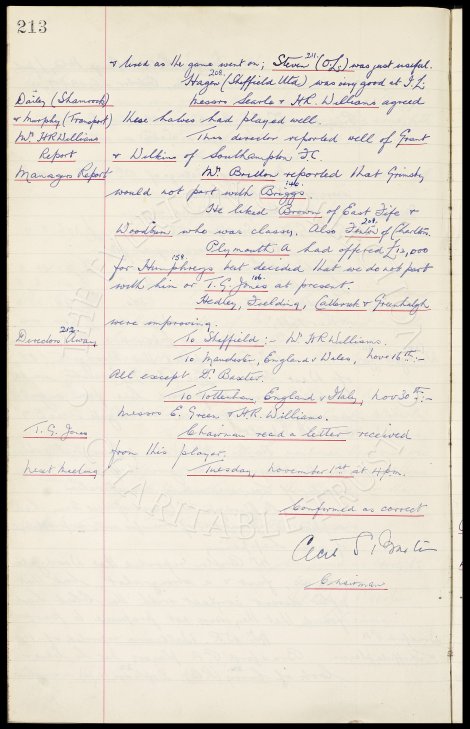 213
& tired as the game went on; Steven (O.L.) was just useful.
211.
Hagen (Sheffield Utd) was very good at I.L.
208.
Dailey (Shamrock) Messrs Searle & H.R. Williams agreed
& Murphy (Transport) these halves had played well.
Mr H R Williams This director reported well of Grant
Report & Wilkins of Southampton FC
Managers Report Mr. Britton reported that Grimsby
would not part with Briggs
146.
He liked Brown of East Fife &
Woodburn who was classy. Also Fenton of Charlton.
208.
Plymouth A had offered £12,000
for Humphreys but decided that we do not part
158.
with him or T.G. Jones at present.
166.
Hedley, Fielding, Catterick & Greenhalgh
were improving.
Directors Away To Sheffield :- Mr H R Williams.
212.
To Manchester, England v Wales, Nov 16th :-
All except Dr. Baxter.
To Tottenham, England v Italy, Nov 30th :-
Messrs E. Green & H.R. Williams.
T. G. Jones Chairman read a letter received
from this player.
Next Meeting Tuesday, November 1st at 4pm.
Confirmed as correct
Cecil S. Baxter
Chairman
THE EVERTON COLLECTION CHARITABLE TRUST